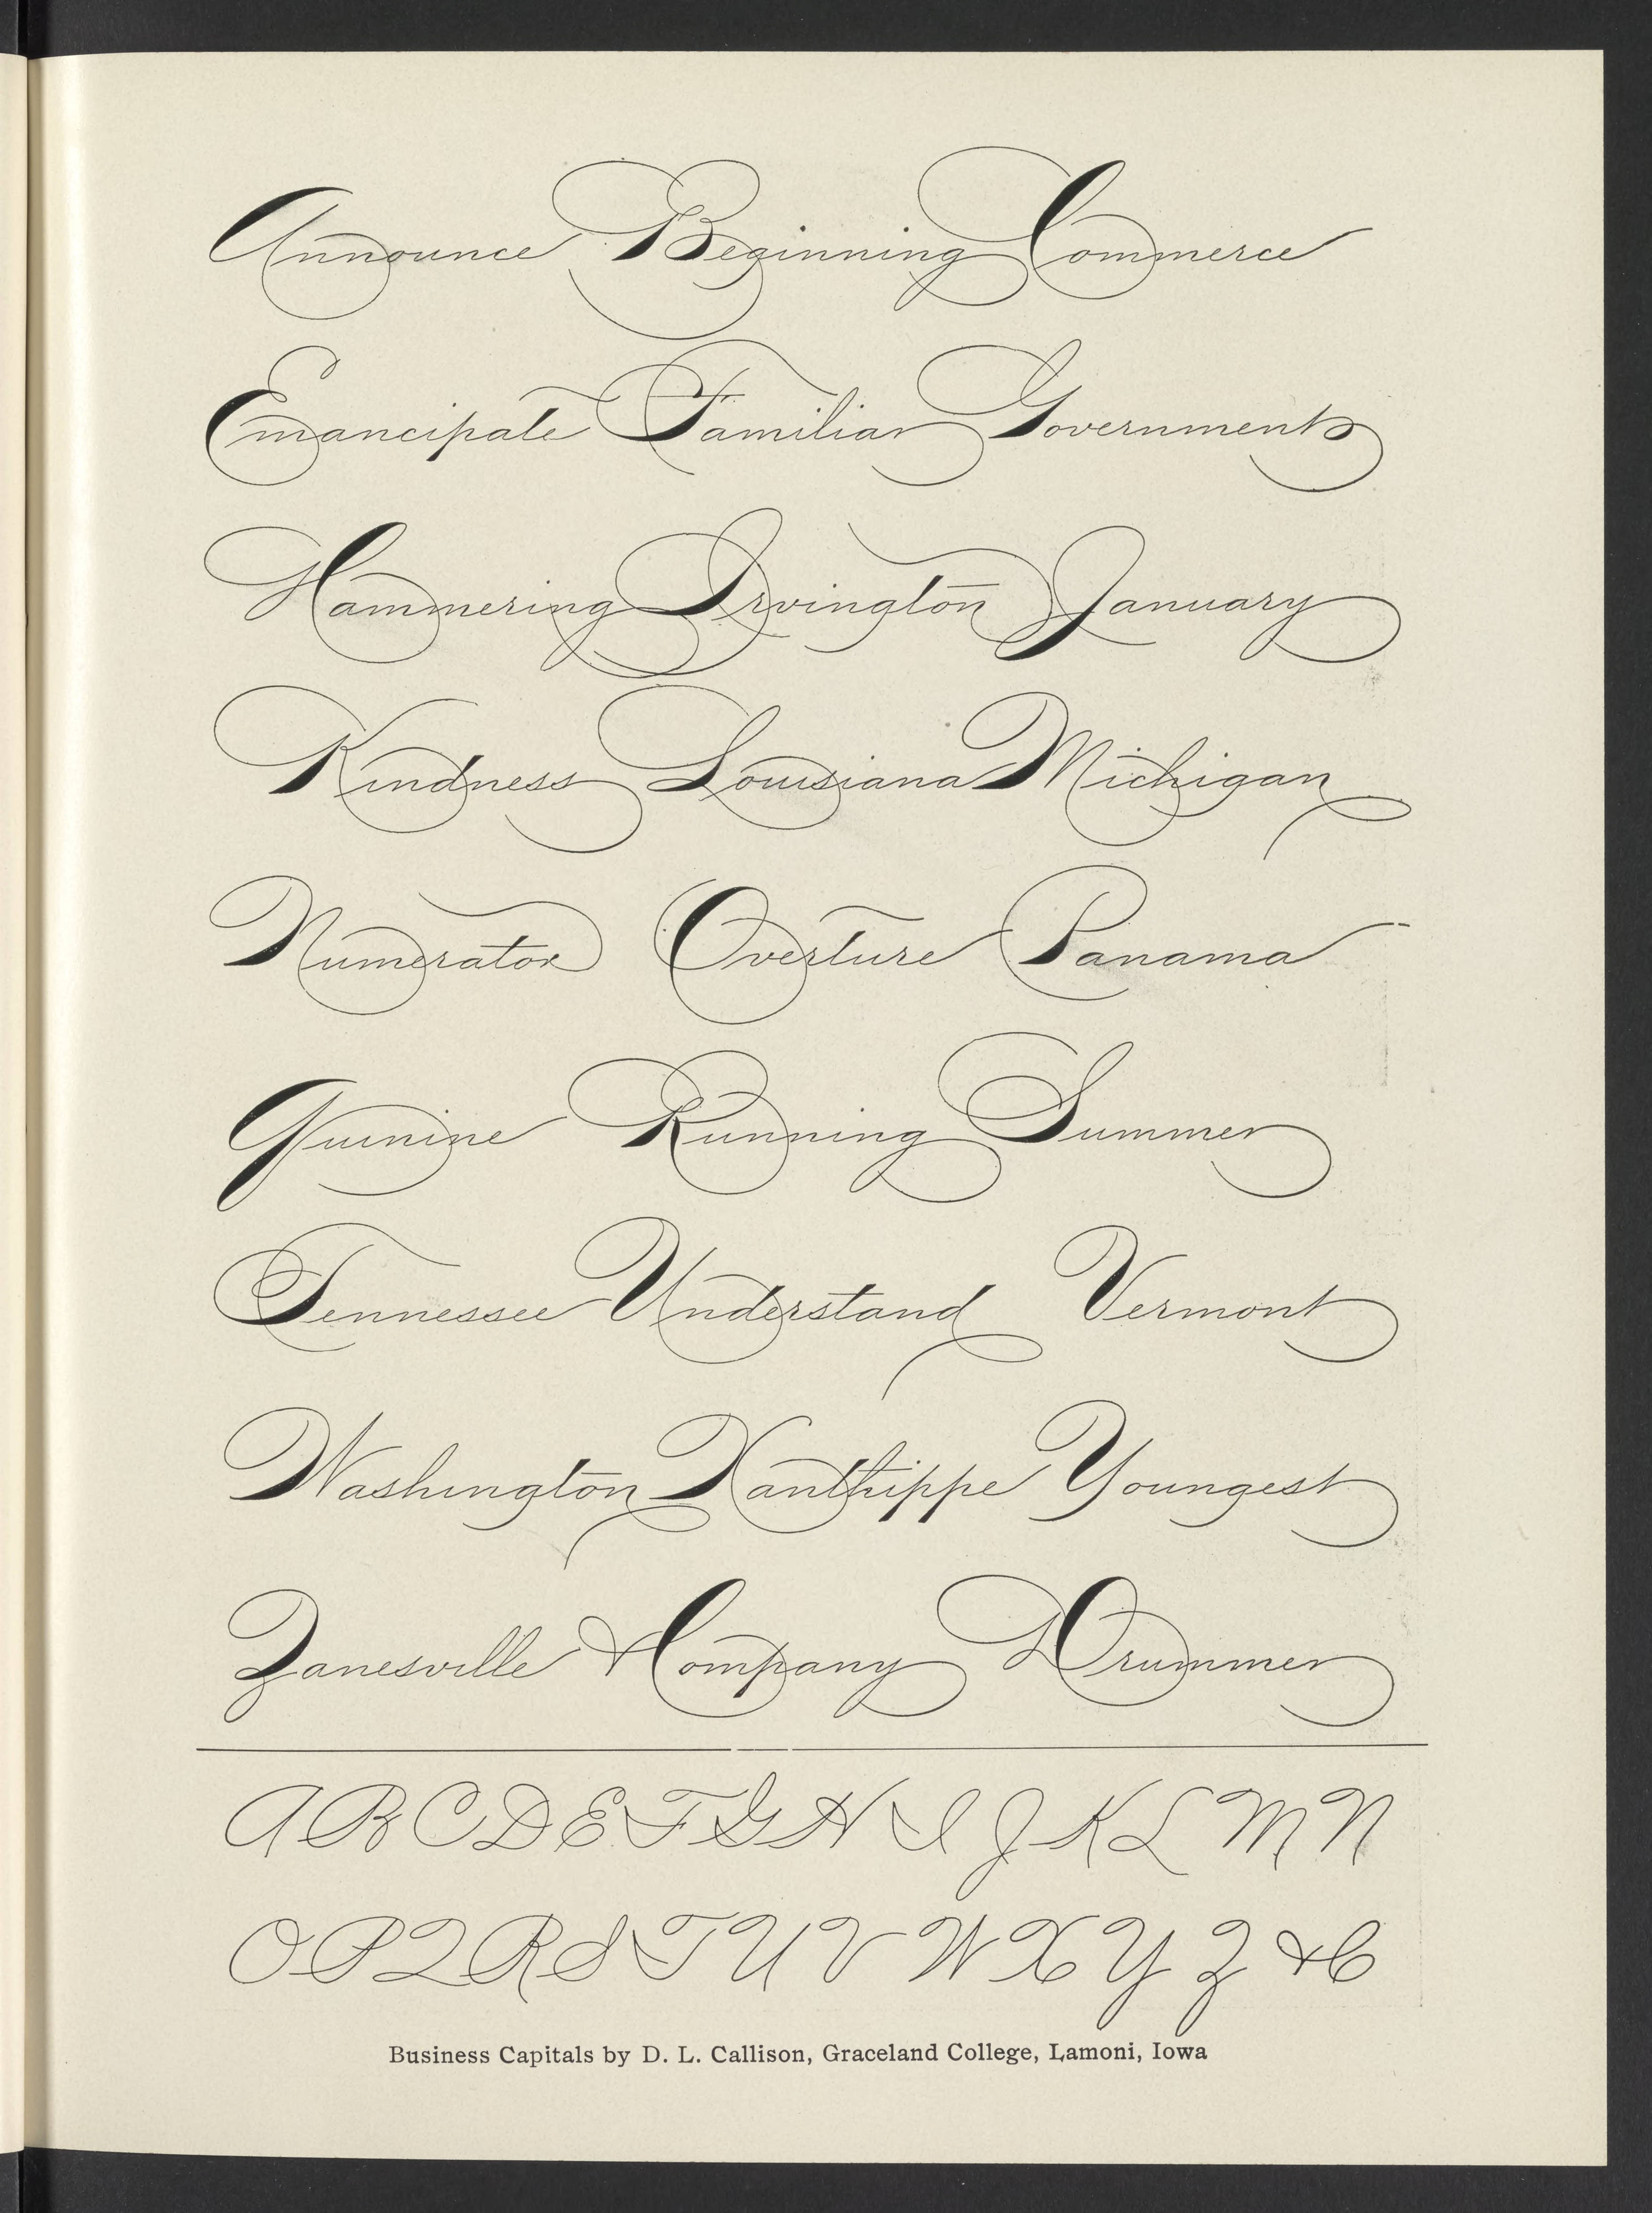 Announce Beginning Commerce
Emancipate Familiar Governments
Hammering Irvington January
Kindness Louisiana Michigan
Numerator Overture Panama
Quinine Running Summer
Tennessee Understand Vermont
Washington Xanthippe Youngest
Zanesville & Company Drummer
A B C D E F G H I J K L M N
O P Q R S T U V W X Y Z & C
Business Capitals by D. L. Callison, Graceland College, Lamoni, Iowa